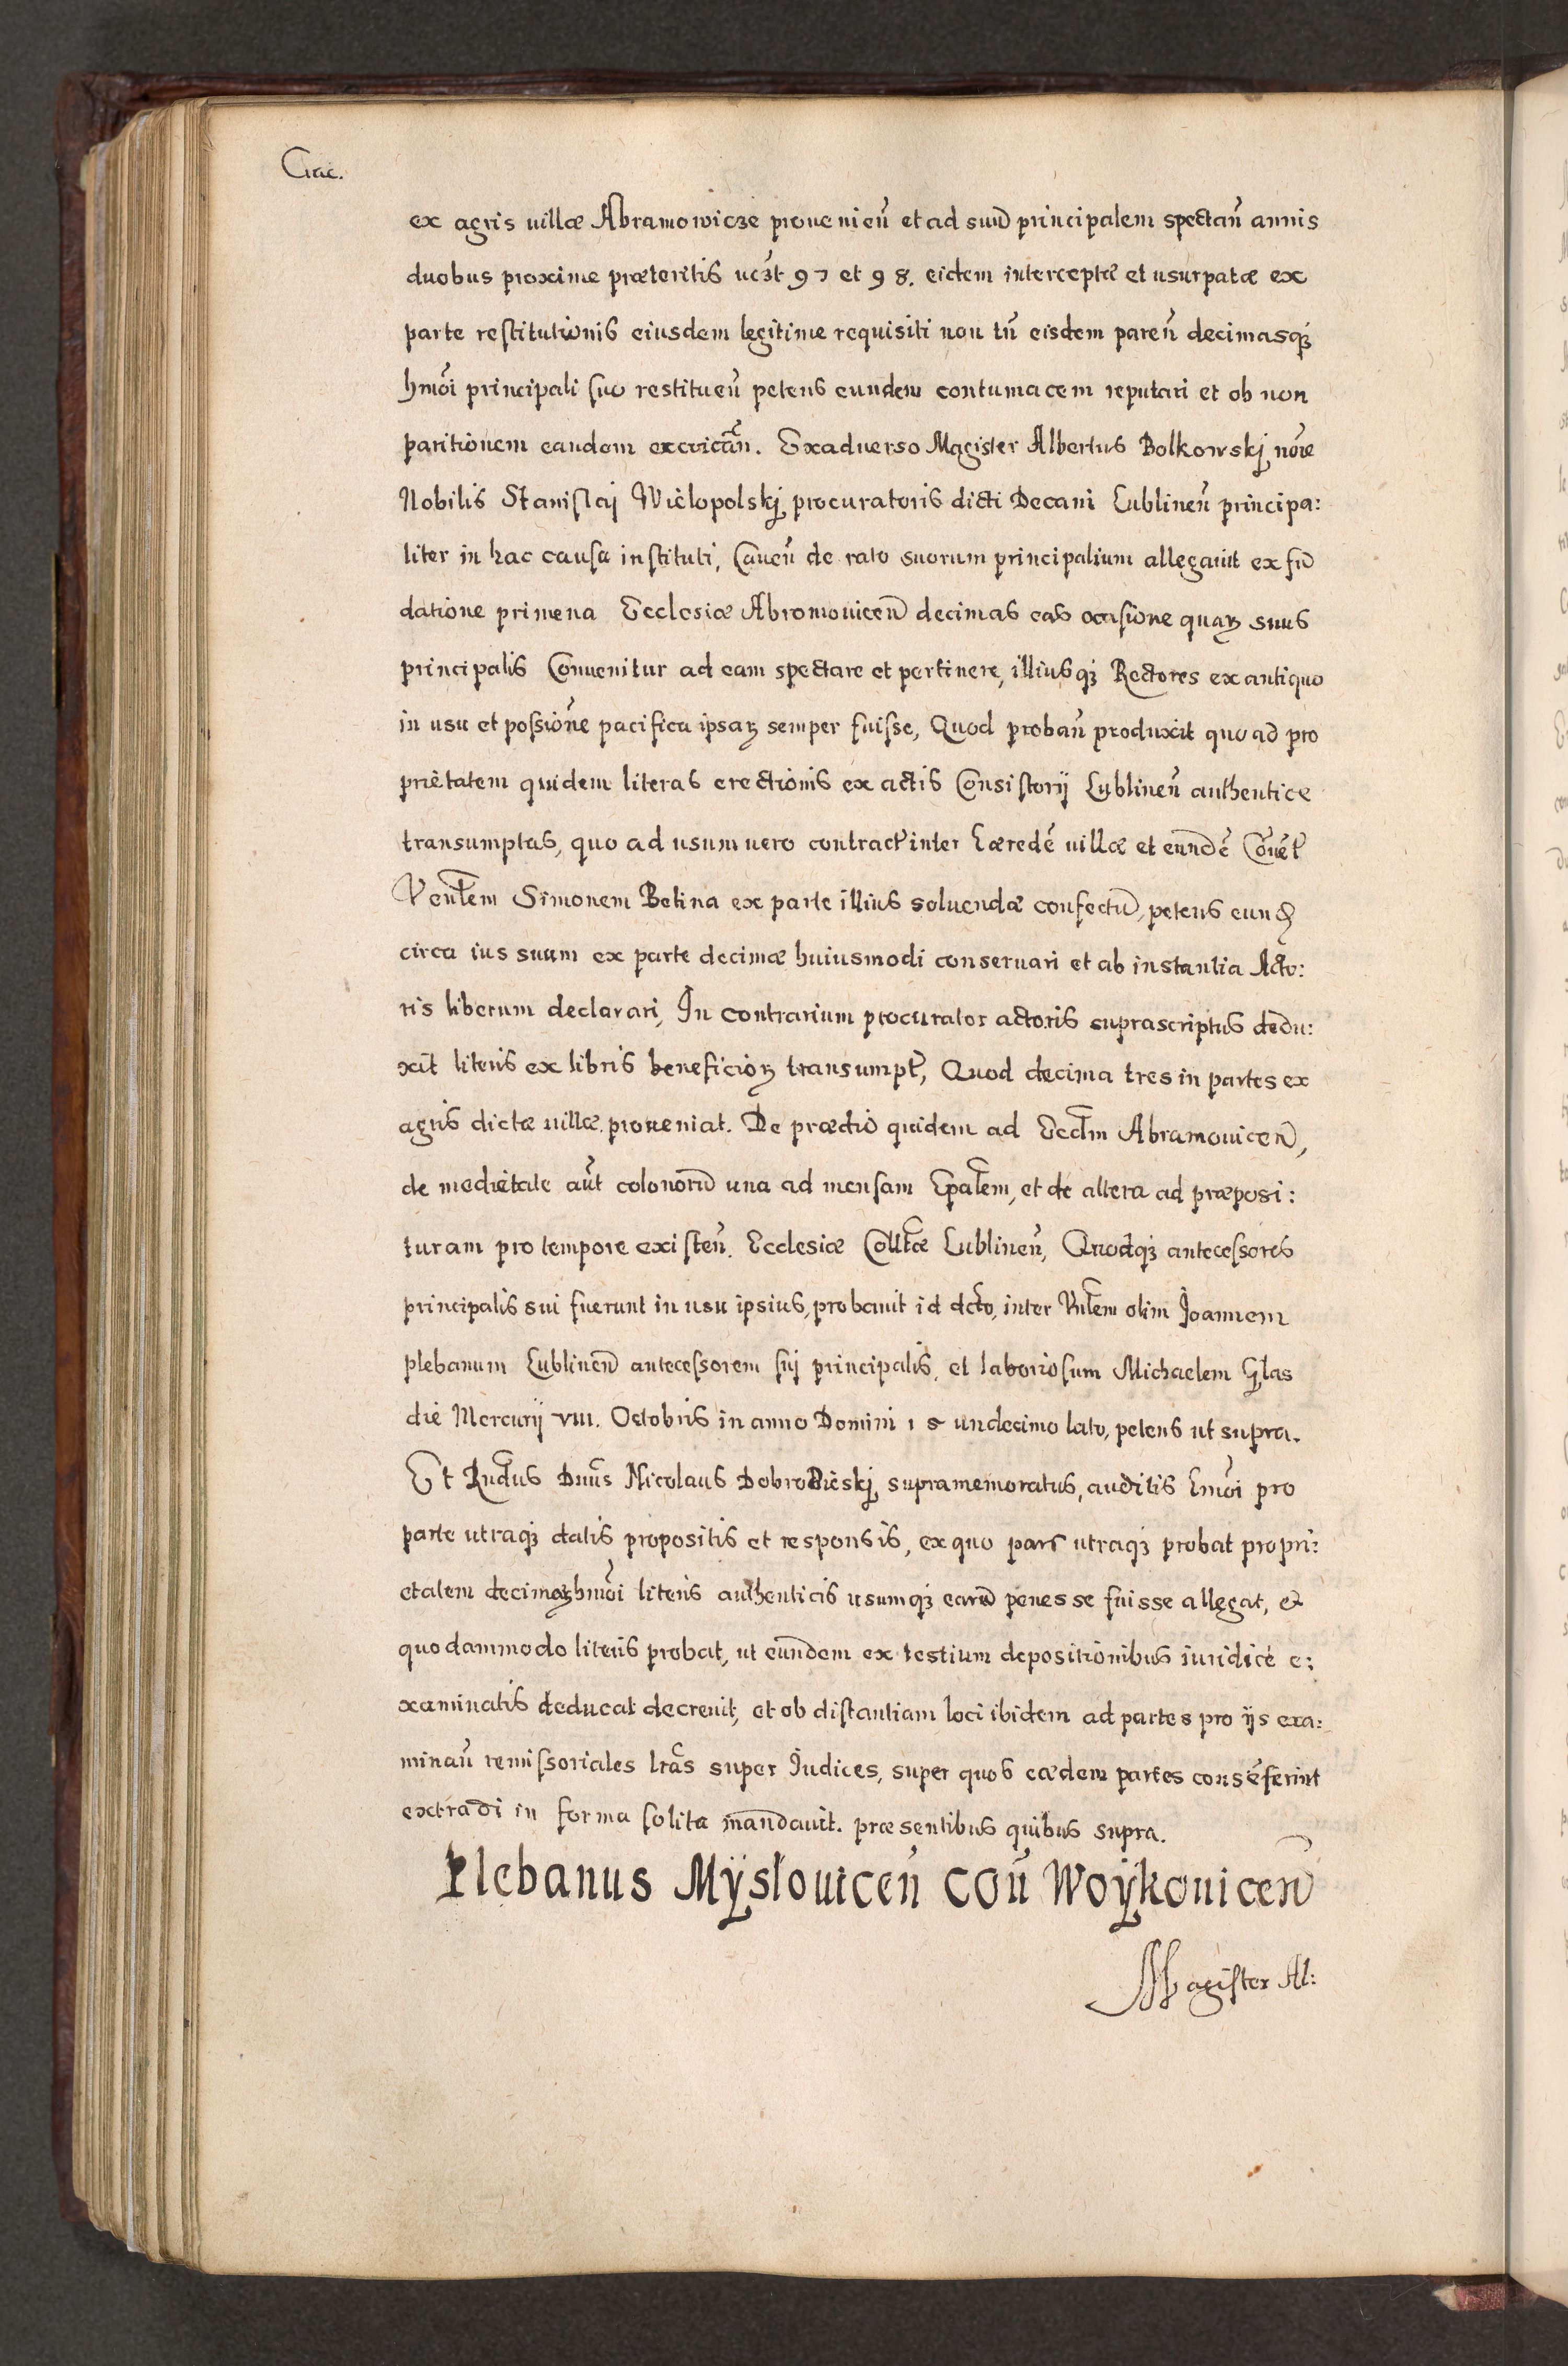 Crac.
ex agris uillæ Abramowicze prouenieñ et ad suũ principalem spectañ annis
duobus proxime præteritis uczt 97 et 98. eidem interceptæ et usurpatæ ex
parte restitutionis eiusdem legitime requisiti non tñ eisdem pareñ decimasqꝫ
hmõi principali suo restitueñ petens eundem contumacem reputari et ob non
paritionem eandem excoicãn. Exaduerso Magister Albertus Bolkowskj nõie
Nobilis Stanislaj Wielopolskj procuratoris dicti Decani Lublineñ principa:
liter in hac causa instituti, Caueñ de rato suorum principalium allegauit ex fũ
datione primeua Ecclesiæ Abromouiceñ decimas eas ocasione quaꝝ suus
principalis Conuenitur ad eam spectare et pertinere, illiusqꝫ Rectores ex antiquo
in usu et possiõne pacifica ipsaꝝ semper fuisse, Quod probañ produxit quo ad pro
prietatem quidem literas erectionis ex actis Consistorij Lublineñ authentice
transumptas, quo ad usum uero contract̃ inter Hæredẽ uillæ et eundẽ Cõuẽt̃
Ventẽm Simonem Betina ex parte illius soluendæ confectũ, petens eund̃
circa ius suum ex parte decimæ huiusmodi conseruari et ab instantia Acto:
ris liberum declarari, In contrarium procurator actoris suprascriptus dedu:
xit literis ex libris beneficioꝝ transumpt̃, Quod decima tres in partes ex
agris dictæ uillæ proueniat. De prædio quidem ad Eccl̃m Abramouiceñ,
de medietate aũt colonorũ una ad mensam Ep̃alem, et de altera ad præposi:
turam pro tempore existeñ. Ecclesiæ Coll̃tæ Lublineñ, Quodqꝫ antecessores
principalis sui fuerunt in usu ipsius, probauit id dcto, inter Vñlem olim Joannem
plebanum Lublineñ antecessorem suj principalis, et laboriosum Michaelem Glas
die Mercurij VIII. Octobris in anno Domini 15 undecimo lato, petens ut supra.
Et Rñdus Dñus Nicolaus Dobrocieskj supramemoratus, auditis hmõi pro
parte utraqꝫ datis propositis et responsis, ex quo pars utraqꝫ probat propri:
etatem decimaꝝ hmõi literis authenticis usumqꝫ earũ penes se fuisse allegat, et
quodammodo literis probat, ut eundem ex testium depositionibus iuridice e:
xaminatis deducat decreuit, et ob distantiam loci ibidem ad partes pro ijs exa:
minañ remissoriales lr̃as super Iudices, super quos eædem partes consẽserint
extradi in forma solita mandauit. præsentibus quibus supra.
Plebanus Mÿslouiceñ coñ Woÿkouiceñ
Magister Al: